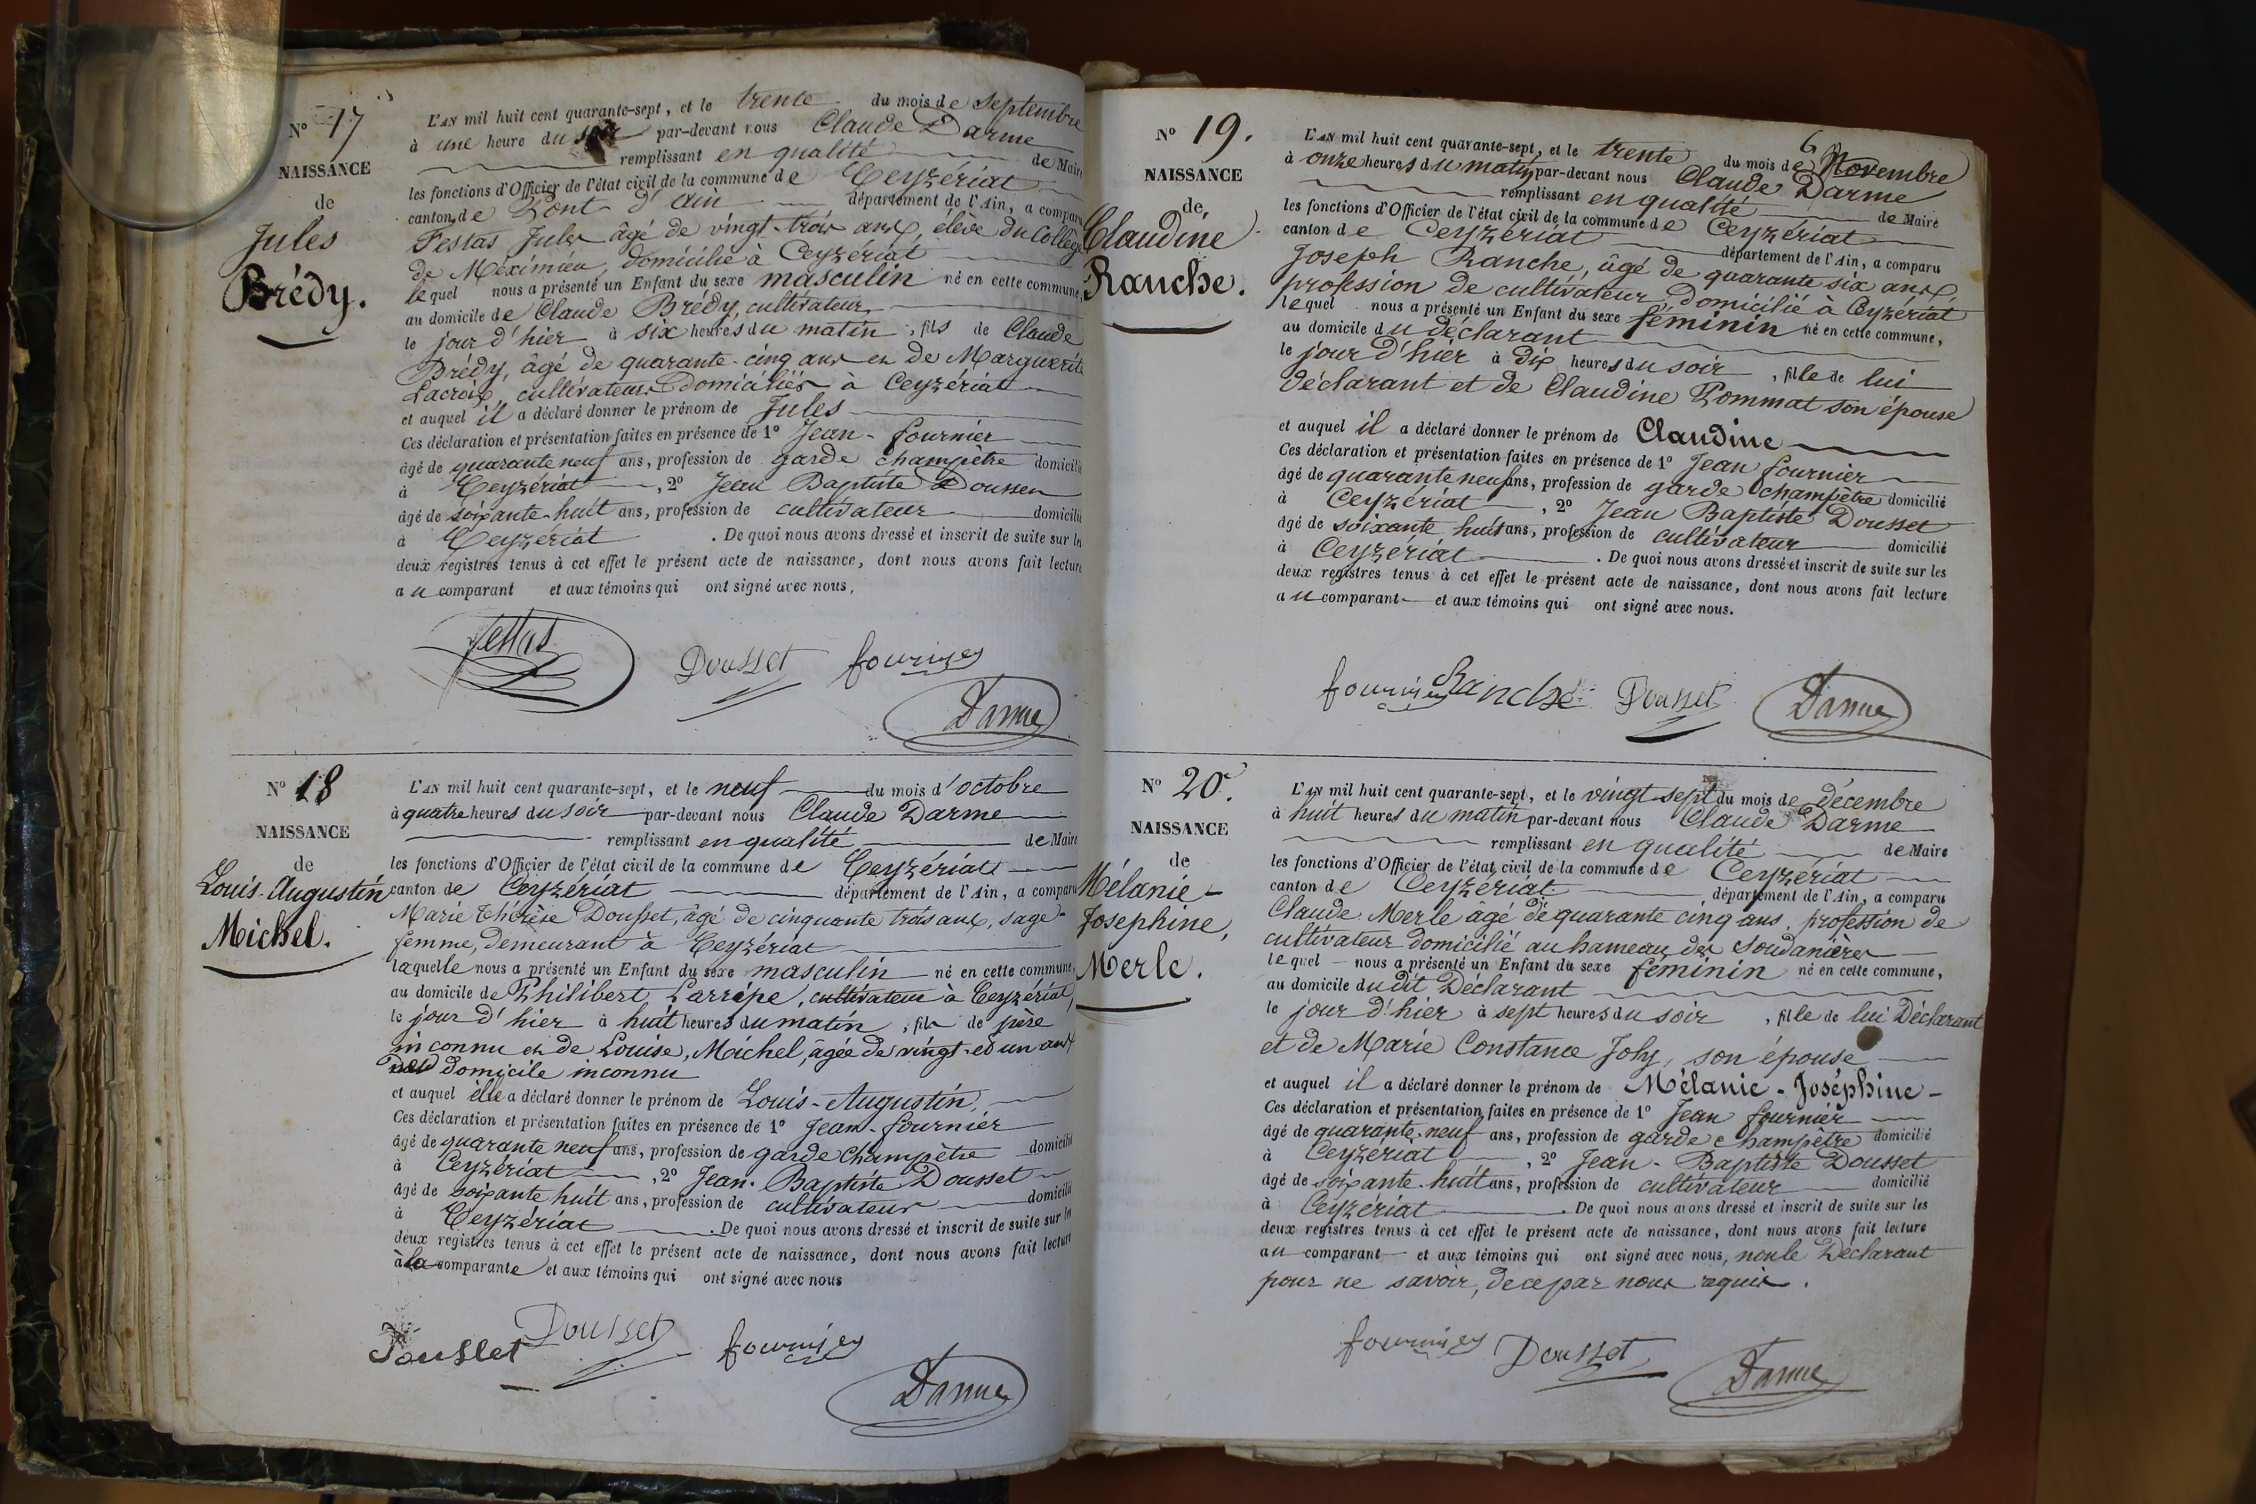 N° 17
NAISSANCE
de
Jules
Brédy.
L'AN mil huit cent quarante-sept, et le trente du mois de septembre
à une heure du soir par-devant nous Claude Darme
remplissant en qualité de Maire
les fonctions d'Officier de l'état civil de la commune de Ceyzériat
canton de Pont d'ain département de l'Ain, a comparu
Festas Jules âgé de vingt-trois ans, élève du Collège
de Méximieu, domicilié à Ceyzériat
lequel nous a présenté un Enfant du sexe masculin né en cette commune,
au domicile de Claude Brédy, cultivateur
le jour d'hier à six heures du matin, fils de Claude
Brédy, âgé de quarante-cinq ans et de Marguerite
Lacroix, cultivateurs domiciliés à Ceyzériat
et auquel il a déclaré donner le prénom de Jules
Ces déclaration et présentation faites en présence de 1° Jean-fournier
âgé de quarante neuf ans, profession de garde champêtre domicilié
à Ceyzériat, 2° Jean Baptiste Dousset
âgé de soixante-huit ans, profession de cultivateur domicilié
à Ceyzériat. De quoi nous avons dressé et inscrit de suite sur les
deux registres tenus à cet effet le présent acte de naissance, dont nous avons fait lecture
au comparant et aux témoins qui ont signé avec nous,
Festas Dousset fournier
Darme
N° 18
NAISSANCE
de
Louis-Augustin
Michel.
L'AN mil huit cent quarante-sept, et le neuf du mois d'octobre
à quatre heures du soir par-devant nous Claude Darme
remplissant en qualité de Maire
les fonctions d'Officier de l'état civil de la commune de Ceyzériat
canton de Ceyzériat département de l'Ain, a comparu
Marie Thérèse Dousset, âgé de cinquante trois ans, sage-
femme, demeurant à Ceyzériat
laquelle nous a présenté un Enfant du sexe masculin né en cette commune,
au domicile de Philibert Larripe, cultivateur à Ceyzériat,
le jour d'hier à huit heures du matin, fils de père
inconnu et de Louise, Michel, âgée de vingt-et un ans
domicile inconnu
et auquel elle a déclaré donner le prénom de Louis-Augustin,
Ces déclaration et présentation faites en présence de 1° Jean-fournier
âgé de quarante neuf ans, profession de garde champêtre domicilié
à Ceyzériat, 2° Jean-Baptiste Dousset
âgé de soixante huit ans, profession de cultivateur domicilié
à Ceyzériat. De quoi nous avons dressé et inscrit de suite sur les
deux registres tenus à cet effet le présent acte de naissance, dont nous avons fait lecture
à la comparante et aux témoins qui ont signé avec nous
Dousset Dousset fournier
Darme
N° 19.
NAISSANCE
de
Claudine
Ranche.
L'AN mil huit cent quarante-sept, et le trente du mois de Novembre
à onze heures du matin par-devant nous Claude Darme
remplissant en qualité de Maire
les fonctions d'Officier de l'état civil de la commune de Ceyzériat
canton de Ceyzériat département de l'Ain, a comparu
Joseph Ranche, âgé de quarante six ans,
profession de cultivateur, domicilié à Ceyzériat
lequel nous a présenté un Enfant du sexe féminin né en cette commune,
au domicile du déclarant
le jour d'hier à dix heures du soir, fille de lui
déclarant et de Claudine Pommat son épouse
et auquel il a déclaré donner le prénom de Claudine
Ces déclaration et présentation faites en présence de 1° Jean fournier
âgé de quarante neuf ans, profession de garde champêtre domicilié
à Ceyzériat, 2° Jean Baptiste Dousset
âgé de soixante huit ans, profession de cultivateur domicilié
à Ceyzériat. De quoi nous avons dressé et inscrit de suite sur les
deux registres tenus à cet effet le présent acte de naissance, dont nous avons fait lecture
au comparant et aux témoins qui ont signé avec nous.
fournier Ranche Dousset Darme
N° 20.
NAISSANCE
de
Mélanie-
Josephine,
Merle.
L'AN mil huit cent quarante-sept, et le vingt-sept du mois de décembre
à huit heures du matin par-devant nous Claude Darme
remplissant en qualité de Maire
les fonctions d'Officier de l'état civil de la commune de Ceyzériat
canton de Ceyzériat département de l'Ain, a comparu
Claude Merle âgé de quarante cinq ans, profession de
cultivateur domicilié au hameau des Soudanières
lequel nous a présenté un Enfant du sexe féminin né en cette commune,
au domicile dudit Déclarant
le jour d'hier à sept heures du soir, fille de lui Déclarant
et de Marie Constance Joly, son épouse
et auquel il a déclaré donner le prénom de Mélanie-Joséphine-
Ces déclaration et présentation faites en présence de 1° Jean fournier
âgé de quarante-neuf ans, profession de garde champêtre domicilié
à Ceyzériat, 2° Jean-Baptiste Dousset
âgé de soixante-huit ans, profession de cultivateur domicilié
à Ceyzériat. De quoi nous avons dressé et inscrit de suite sur les
deux registres tenus à cet effet le présent acte de naissance, dont nous avons fait lecture
au comparant et aux témoins qui ont signé avec nous, non le Déclarant
pour ne savoir, de ce par nous requis.
fournier Dousset Darme